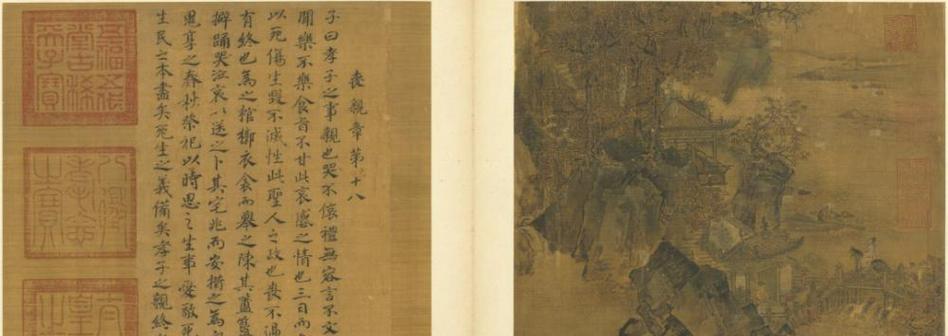 喪親章第十八
子曰孝子之事親也哭不偯禮無容言不文
聞樂不樂食旨不甘此哀慼之情也三日而
以死傷生毀不滅性此聖人之政也喪不過
有終也為之棺槨衣衾而舉之陳其簠
擗踊哭泣哀以送之卜其宅兆而安措之為
思享之春秋祭祀以時思之生事愛敬死
生民之本盡矣死生之義備矣孝子之親終
五福五代堂古稀天子寶
八徵耄念之寶